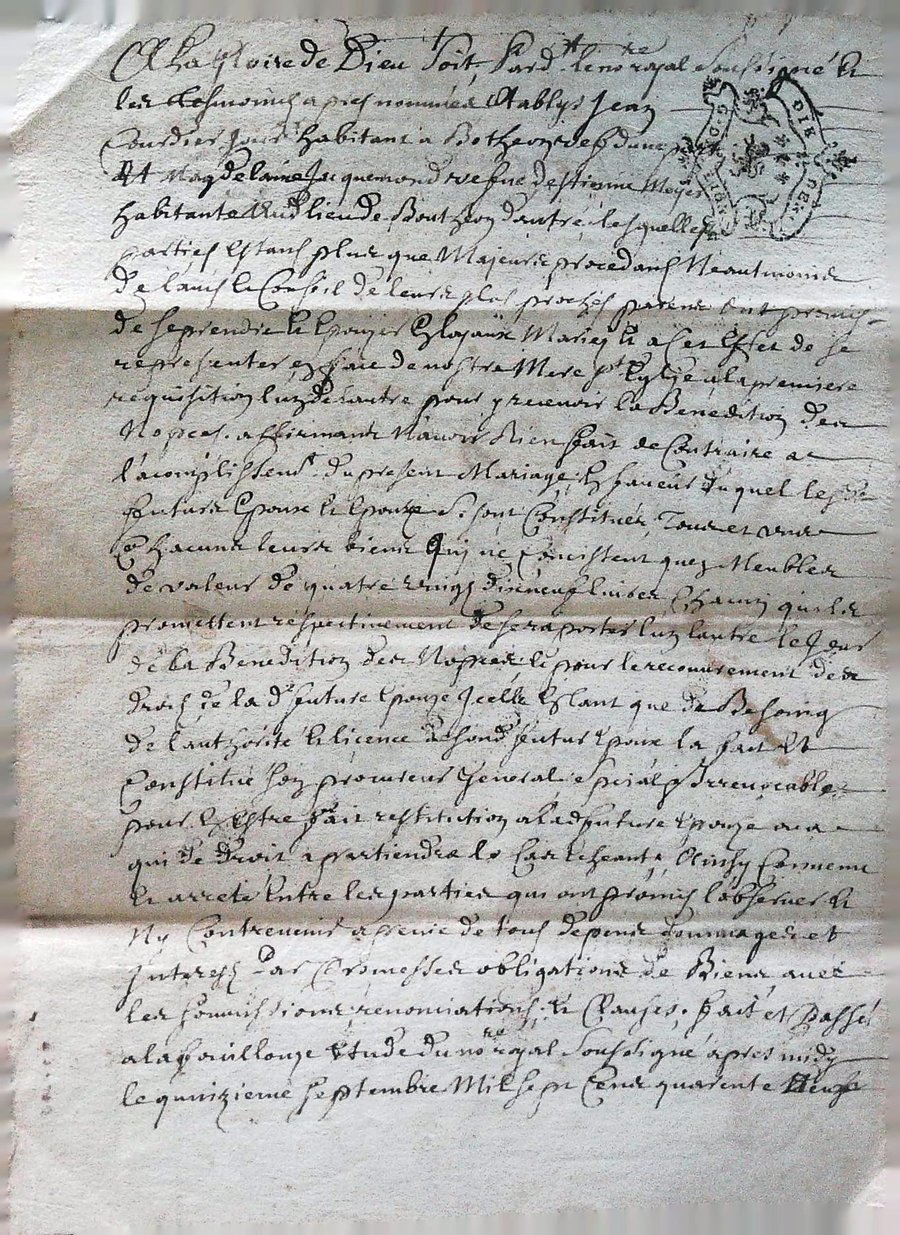 A La gloire de Dieu soit, Pard^t le no^re royal Soussigné Et
les tesmoins apres nommés Establys Jean
Cordier Jour^r habitant a Botheon def d'une part
Et Magdelaine Jacquemond vefve d'Estienne Meyer
habitante Audlieu de Bouthéon d'autre lesquelles
parties Estans plus que Majeurs procedans Neantmoins
de l'avis Et Conseil de leurs plus proches parens Ont promis
de se prendre Et Epouzer En loyaux Mariés Et a Cet Effet de se
representer en face de nostre Mere s^te Eglise a la premiere
requisition l'un de l'autre pour y recevoir la Benediction des
Nopces. affirmans N'avoir Rien fait de Contraire a
l'acomplissem^t du present Mariage, En faveur duquel les d^s
futurs Epoux Et Epouze Se sont Constitués Tous et uns
Chacuns leurs biens Qui ne Consistent qu'en Meubles
de valeur de quatre vingt dixneuf livres Chacun qu'ils
promettent respectivement de se raporter l'un l'autre le Jour
de la Benediction des Nopces, Et pour le recouvrement des
droits de la d^e future Epouze Icelle Estant que de Besoing
de l'authorité Et licence desond^t futur Epoux la fait Et
Constitué son procureur General, Special Et Irrevocable
pour En Estre fait restitution a lad future Epouze ou a
qui de droit apartiendra le Cas Echeant, Ainsy Convenu
Et arreté Entre les parties qui ont promis l'observer Et
Ny Contrevenir a peine de tous depens dommages et
Interests Par Promesses obligations de Biens avec
les soumissions, renonciations, Et Clauses. fait et Passé
a la fouillouze Etude du no^re royal Soussigné apres midy
le quinzieme Septembre Mil sept Cens quarente Neuf